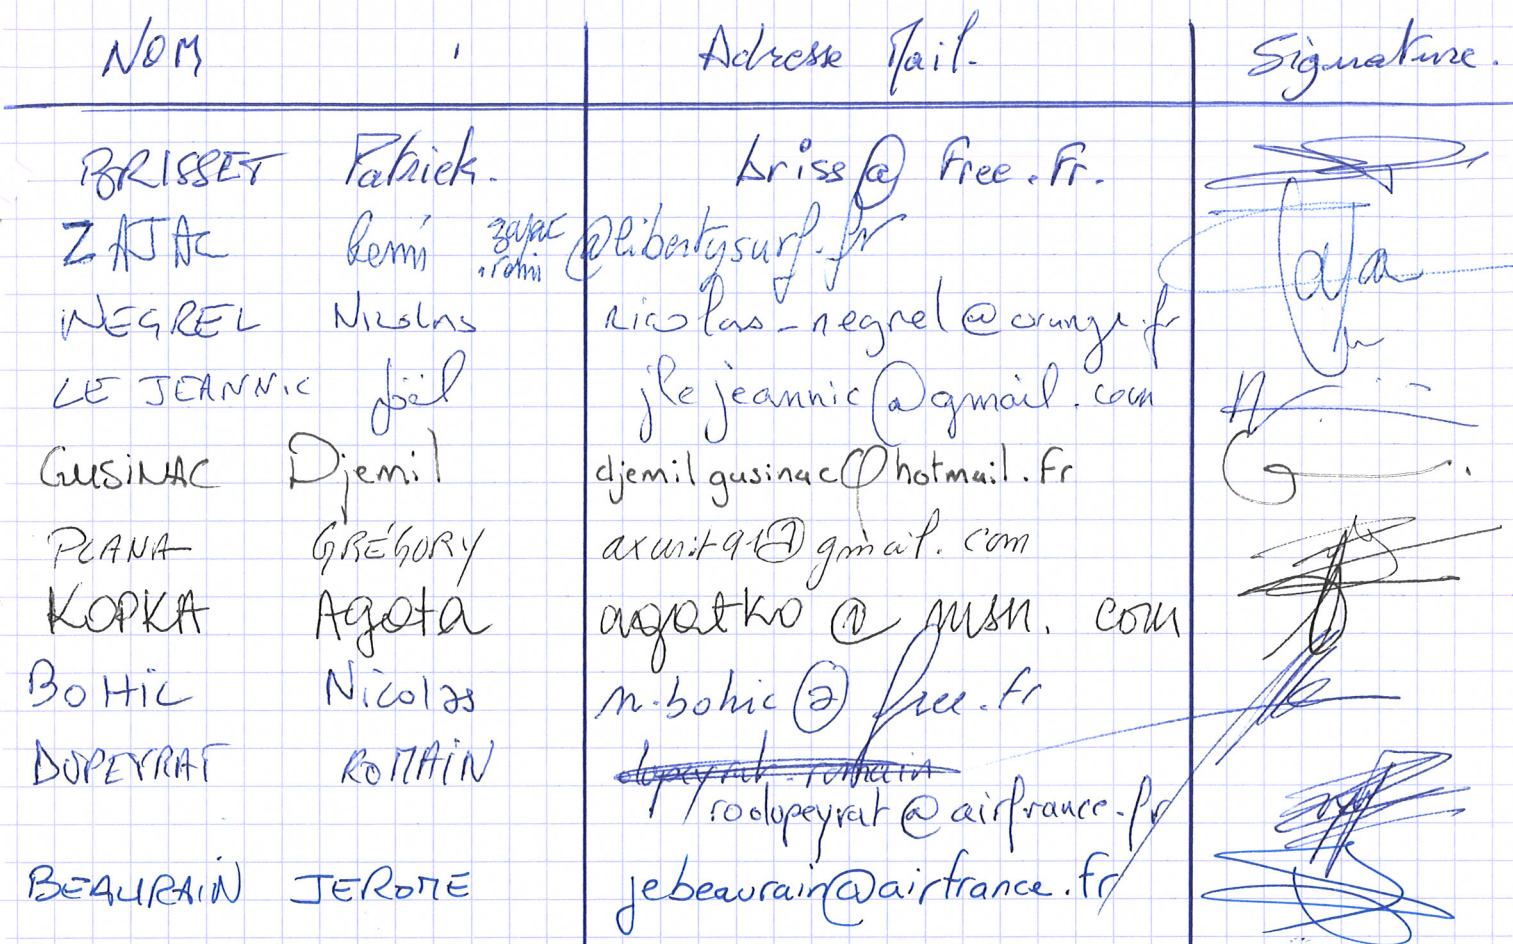 NOM Adresse Mail. Signature.
BRISSET Patrick. briss@free.fr.
ZAJAC Remi zajac
.remi @libertysurf.fr
NEGREL Nicolas nicolas-negrel@orange.fr
LE JEANNIC Joël jlejeannic@gmail.com
GUSINAC Djemil djemilgusinac@hotmail.fr
PLANA GRÉGORY axunit91@gmail.com
KOPKA Agata agatko@msn.com
BOHIC Nicolas n.bohic@free.fr
DUPEYRAT ROMAIN dupeyrat.romain
rodupeyrat@airfrance.fr
BEAURAIN JEROME jebeaurain@airfrance.fr